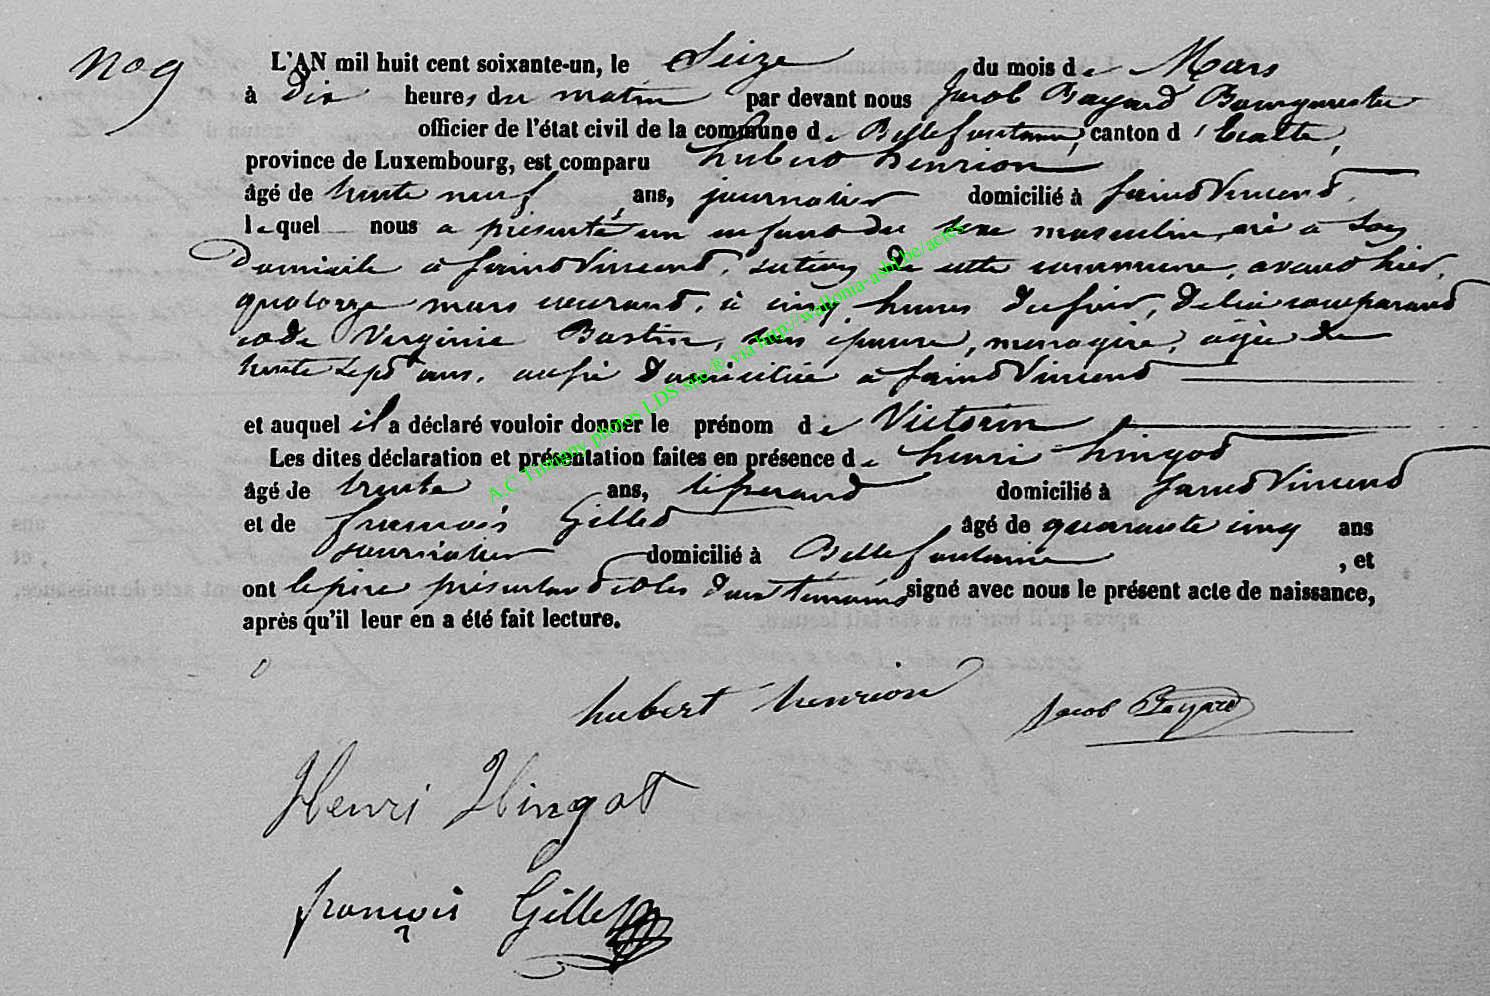 No 9
L'AN mil huit cent soixante-un, le Seize du mois de Mars
à Dix heures du matin par devant nous Jacob Bayard Bourgmestre
officier de l'état civil de la commune de Bellefontaine, canton d'Etalle,
province de Luxembourg, est comparu hubert henrion
âgé de trente neuf ans, journalier domicilié à saint Vincent,
lequel nous a présenté un enfant du sexe masculin, né à son
Domicile à saint Vincent, section de cette commune, avant hier,
quatorze mars courant, à cinq heures du soir, de lui comparant
et de Virginie Bastin, son épouse, menagère, agée de
trente sept ans, aussi Domiciliée à saint Vincent
et auquel il a déclaré vouloir donner le prénom de Victorin
Les dites déclaration et présentation faites en présence de henri hingot
âgé de trente ans, tisserand domicilié à saint Vincent
et de françois Gilles âgé de quarante cinq ans
journalier domicilié à Bellefontaine, et
ont le père présentant et les deux témoins signé avec nous le présent acte de naissance,
après qu'il leur en a été fait lecture.
hubert henrion Jacob Bayard
Henri Hingot
françois Gilles
A.C Tintigny photos LDS site ® via http://wallonia-asbl.be/actes